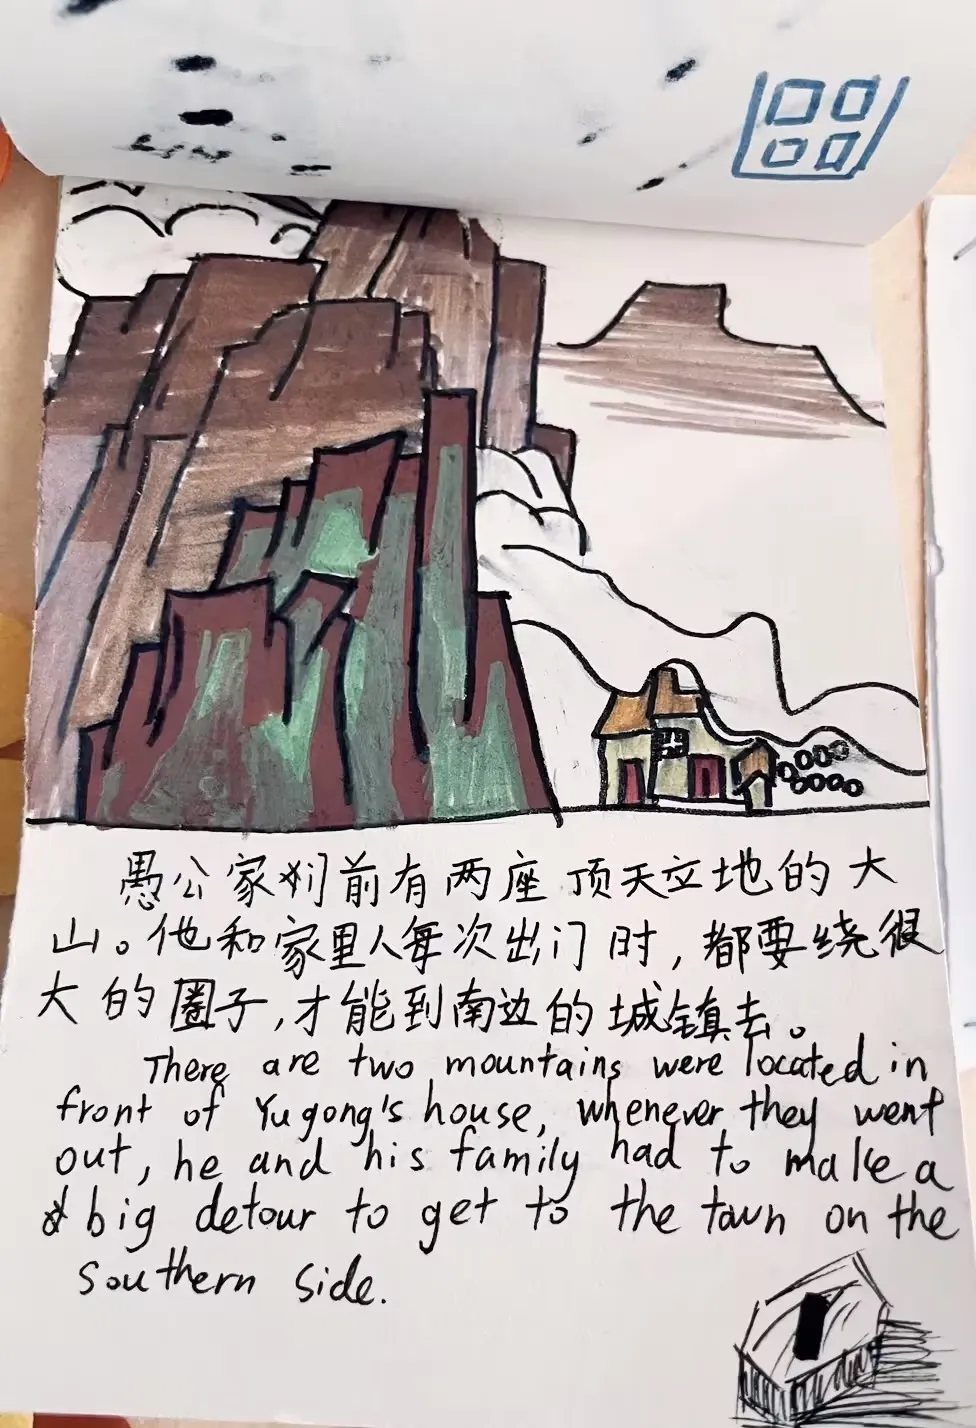 愚公家门前有两座顶天立地的大
山。他和家里人每次出门时，都要绕很
大的圈子，才能到南边的城镇去。
There are two mountains were located in
front of Yugong's house, whenever they went
out, he and his family had to make a
big detour to get to the town on the
southern side.